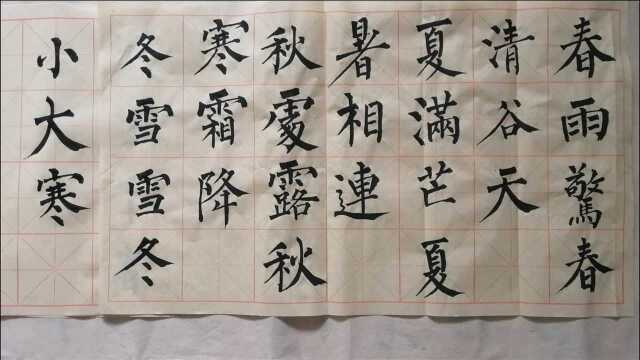 春雨驚春
清谷天
夏滿芒夏
暑相連
秋處露秋
寒霜降
冬雪雪冬
小大寒